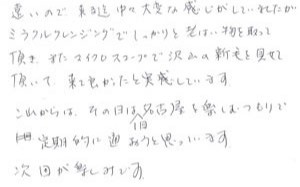 遠いので来る途中で大変な感じがしていましたが
ミラクルクレンジングでしっかりと老はい物を取って
頂き、またマイクロスコープで沢山の新毛を見せて
頂いて、来て良かったと実感しています
これからは、その日は名古屋を楽しむつもりで
1回
定期的に通おうと思っています
次回が楽しみです